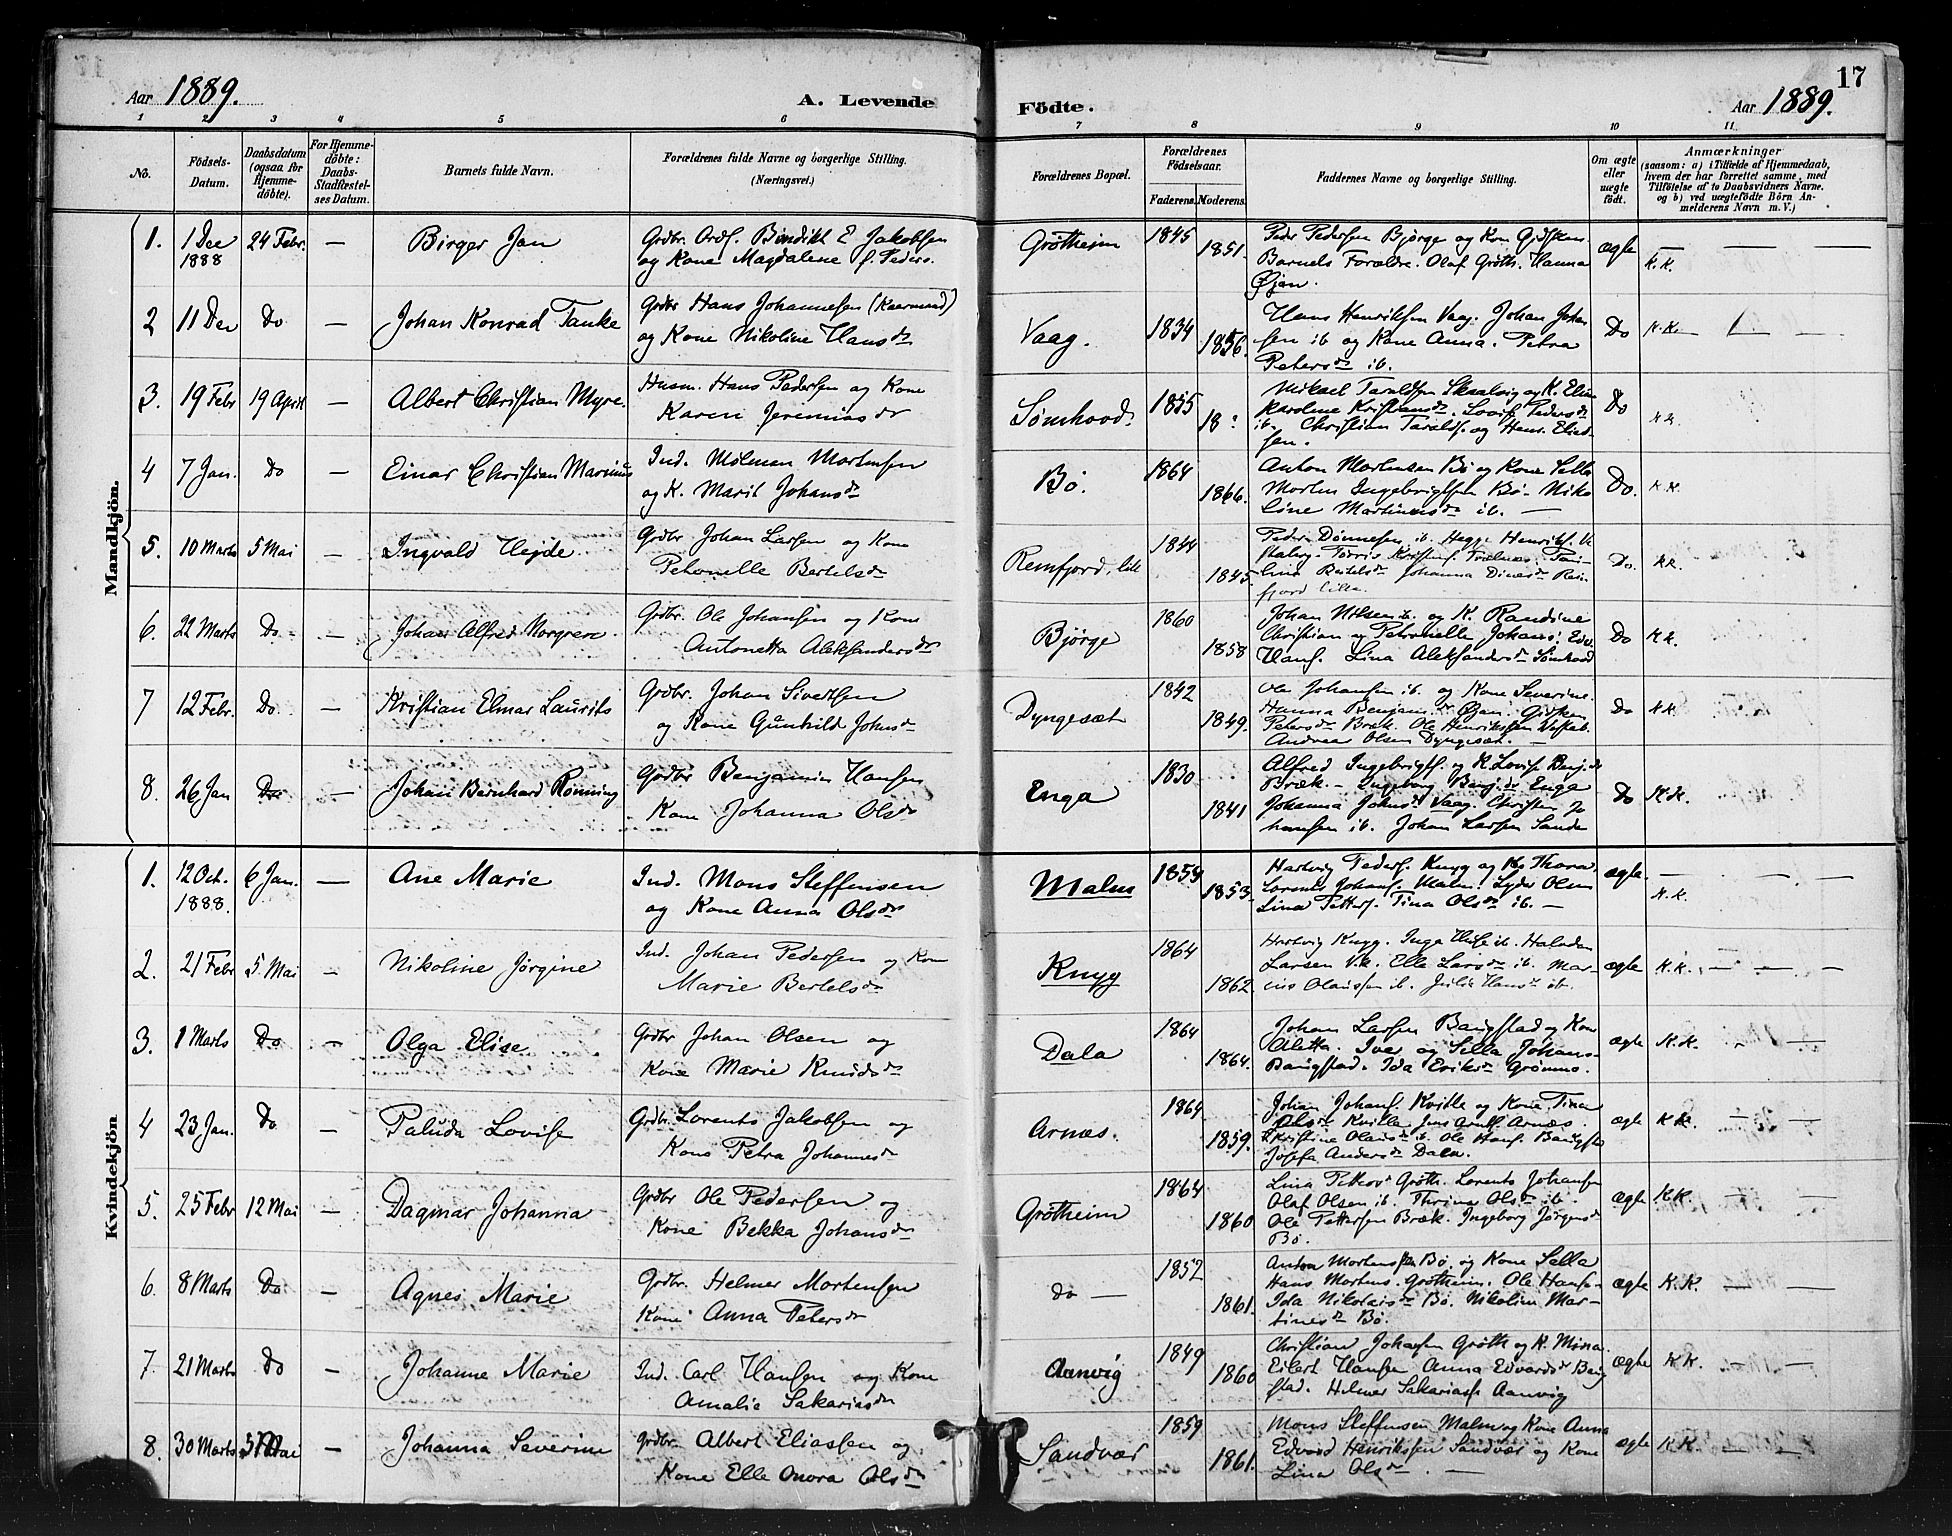 17
Aar 1889. A. Levende Födte. Aar 1889.
1 2 3 4 5 6 7 8 9 10 11
No. Födsels-Datum. Daabsdatum (ogsaa for Hjemme-döbte). For Hjemme-döbte: Daabs-Stadfæstel-ses Datum. Barnets fulde Navn. Forældrenes fulde Navne og borgerlige Stilling. (Næringsvei.) Forældrenes Bopæl. Forældrenes Födselsaar. Faderens. Moderens. Faddernes Navne og borgerlige Stilling. Om ægte eller uægte födt. Anmærkninger (saasom: a) i Tilfælde af Hjemmedaab, hvem der har forrettet samme, med Tilföielse af to Daabsvidners Navne, og b) ved uægtefödte Börn An-melderens Navn m. V.)
Mandkjön.
1. 1 Dec 1888 24 Febr. — Birger Jan Grdbr. Ordf. Bendikt E Jakobsen
og Kone Magdalene f. Peders. Grøtheim 1845 1851. Peder Pedersen Bjørge og Kone Gjdsken.
Barnets Forældre. Olaf Grøth. Hanna
Øjen. ægte K.K. — — —
2 11 Dec Do — Johan Konrad Tanke Grdbr Hans Johannesen
og Kone Nikoline Hansdr Vaag. 1834 1856. Hans Henriksen Vaag. Johan Johan
sen ib og Kone Anna. Petra
Petersdr ib. Do K.K. — — —
3. 19 Febr 19 April — Albert Christian Myre. Husm. Hans Pedersen og Kone
Karen Jeremiasdr Sømhovd. 1855 18 Mikael Taraldsen Skaalvig og K. Elen
Karoline Kristiansdr. Lovise Pedersdr
ib. Christian Taralds. og Hans Elias
sen. Do K.K.
4 7 Jan. Do — Einar Christian Marinus Ind. Mølman Mortensen
og K. Marit Johansdr Bø. 1864 1866. Anton Mortensen Bø og Kone Sella
Morten Ingebrigtsen Bø. Niko
line Martinusdr ib. — Do. K.K.
5. 10 Marts 5 Mai — Ingvald Hejde Grdbr Johan Larsen og Kone
Petonelle Bertelsdr Remfjord, lill 1844 1845 Peder Dønnesen ib. Hegge Henriks.
lina Bertelsdr Johanna Dinesdr Rem
fjord lille. Do. K.K.
6. 22 Marts Do — Johan Alfred Norgren. Grdbr. Ole Johansen og Kone
Antonetta Aleksandersdr Bjørge 1860 1858 Johan Nilsen ib. og K. Randine
Christian og Petronelle Johans. Edv.
Hans. Lina Aleksandersdr Sømhovd Do K.K.
7 12 Febr. Do — Kristian Elmar Laurits Grdbr. Johan Sivertsen
og Kone Gunhild Johnsdr Dyngesæt 1842 1849. Ole Johansen ib. og Kone Severine.
Hanna Benjam.dr Øjen. Gidsken
Petersdr Bræk. Ole Henriksen
Andreas Olsen Dyngesæt. — Do K.K.
8. 26 Jan Do — Johan Bernhard Rønning Grdbr Benjamin Hansen
Kone Johanna Olsdr Enga 1830 1841 Alfred Ingebrigts. og K. Lovise Benj.dr
Bræk. — Ingeborg Benj.dr Enga
Johanna Johnsdr Vaag. Christen Jo
hansen ib. Johan Larsen Sande Do K.K.
Kvindekjön
1. 12 Oct. 1888. 6 Jan. — Ane Marie Ind. Mons Steffensen
og Kone Anna Olsdr Malm 1854 1853. Hartvig Peders. Knyg og K. Thora.
Lorents Johans. Malm. Lyder Olsen
Lina Petters. Tina Olsdr ib. — ægte. — — — K.K.
2. 21 Febr 5 Mai — Nikoline Jørgine Ind. Johan Pedersen og Kone
Marie Bertelsdr Knyg 1864 1862. Hartvig Knyg. Inga ib. Halvdan
Larsen V.k. Elle Larsdr ib. Mar-
ius Olaissen ib. Julie Hansdr ib. ægte K.K. — — —
3. 1 Marts Do — Olga Elise Grdbr Johan Olsen og
Kone Marie Knudsdr Dala 1864 1864. Johan Larsen Baugstad og Kone
Aletta. Iver og Sella Johans-
Baugstad. Ida Eriksdr Grønmo. ægte K.K. — —
4 23 Jan. Do — Paluda Lovise Grdbr. Lorents Jakobsen og
Kone Petra Johannesdr Arnæs. 1864 1859. Johan Johans. Kville og Kone Tina
Olsdr Kville Jens Arnts. Arnæs.
Kristine Olausdr ib. Ole Hans. Baugsta
Josefa Andersdr Dala. ægte K.K. — —
5. 25 Febr 12 Mai — Dagmar Johanna Grdbr Ole Pedersen og
Kone Bekka Johansdr Grøtheim 1864 1860 Lina Pettersdr Grøth. Lorents Johansen
Olaf Olsen ib. Thrine Olsdr ib.
Ole Pettersen Bræk. Ingeborg Jørgensdr
Bø. ægte K.K. — —
6. 8 Marts Do — Agnes Marie Grdbr. Helmer Mortensen
Kone Anna Petersdr Do — 1852 1861. Anton Mortensen Bø. og Kone Sella
Hans Mortens. Grøtheim. Ole Hans.
Ida Nikolaisdr Bø. Nikoline Mar-
tinesdr Bø. ægte K.K. — —
7. 21 Marts Do — Johanne Marie Ind. Carl Hansen og Kone
Amalie Sakariasdr Aanvig 1849 1860 Christian Johansen Grøth og K. Mina.
Eilert Hansen Anna Edvardsdr Baug
stad. Helmer Sakariass. Aanvig ægte K.K. — —
8. 30 Marts 5 Mai — Johanna Severine Grdbr. Albert Eliassen og
Kone Elle Onora Olsdr Sandvær 1859 1861. Mons Steffensen Malm og Kone Anna
Edvard Henriksen Sandvær og Kone
Lina Olsdr. — ægte K.K. — —